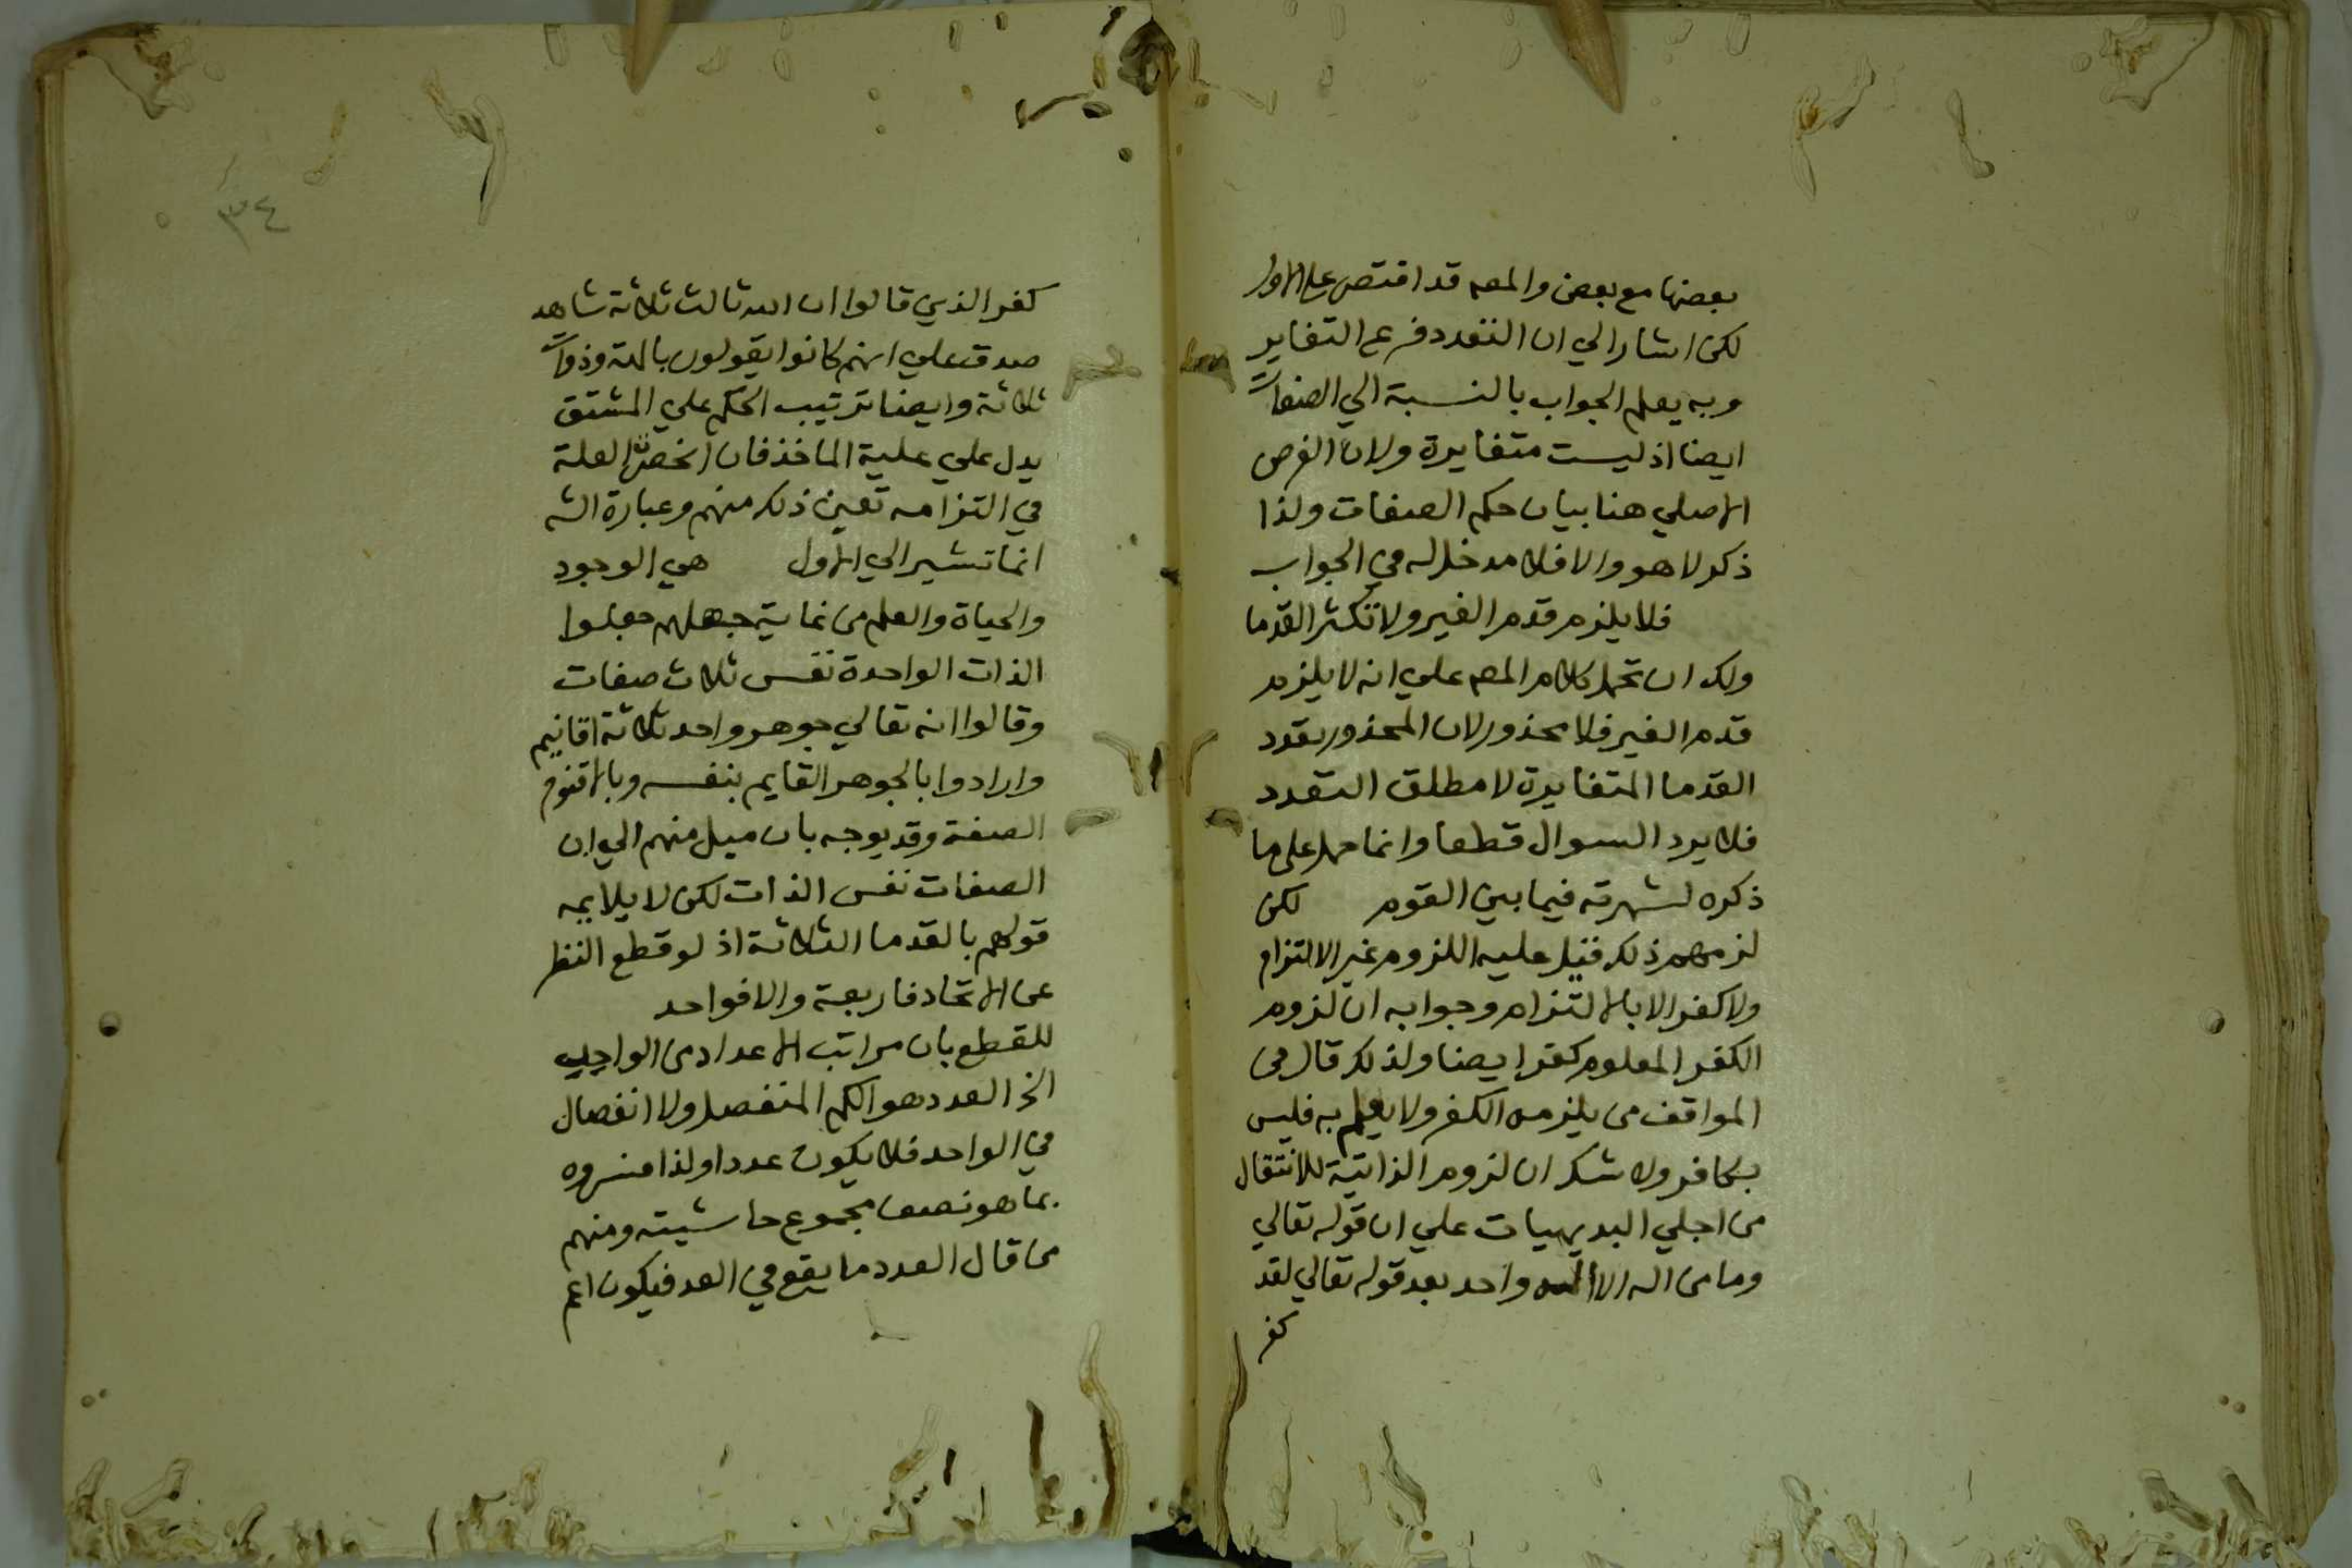 بعضها مع بعض والمصه قد اقتصر علي الاول
لكن اشار الي ان التعدد فرع التغاير
وبه يعلم الجواب بالنسبة الي الصفات
ايضا اذ ليست متغايرة ولان الغرض
الاصلي هنا بيان حكم الصفات ولذا
ذكر لا هو والا فلا مدخل له في الجواب
فلا يلزم قدم الغير ولا تكثر القدما
ولك ان تحمل كلام المصه علي انه لا يلزم
قدم الغير فلا محذور لان المحذور تعدد
القدما المتغايرة لا مطلق التعدد
فلا يرد السوال قطعا وانما حمل علي ما
ذكره لشهرته فيما بين القوم لكن
لزمهم ذلك فقيل عليه اللزوم غير الالتزام
ولا كفر الا بالالتزام وجوابه ان لزوم
الكفر المعلوم كفر ايضا ولذلك قال في
المواقف من يلزمه الكفر ولا يعلم به فليس
بكافر ولا شك ان لزوم الذاتية للانتقال
من اجلي البديهيات علي ان قوله تعالي
وما من اله الا اله واحد بعد قوله تعالي لقد
كفر
٣٤
كفر الذين قالوا ان الله ثالث ثلاثة شاهد
صدق علي انهم كانوا يقولون بالهة وذوات
ثلاثة وايضا ترتيب الحكم علي المشتق
يدل علي علية الماخذ فان انحصرت العلة
في التزامه تعين ذلك منهم وعبارة الشه
انما تشير الي الاول هي الوجود
والحياة والعلم من غاية جهلهم جعلوا
الذات الواحدة نفس ثلاث صفات
وقالوا انه تعالي جوهر واحد ثلاثة اقانيم
وارادوا بالجوهر القايم بنفسه وبالاقنوم
الصفة وقد يوجه بان ميل منهم الي ان
الصفات نفس الذات لكن لا يلايمه
قولهم بالقدما الثلاثة اذ لو قطع النظر
عن الاتحاد فاربعة والا فواحد
للقطع بان مراتب الاعداد من الواحد
الخ العدد هو الكم المنفصل ولا انفصال
في الواحد فلا يكون عددا ولذا فسروه
بما هو نصف مجموع حاشيته ومنهم
من قال العدد ما يقع في العد فيكون اعم